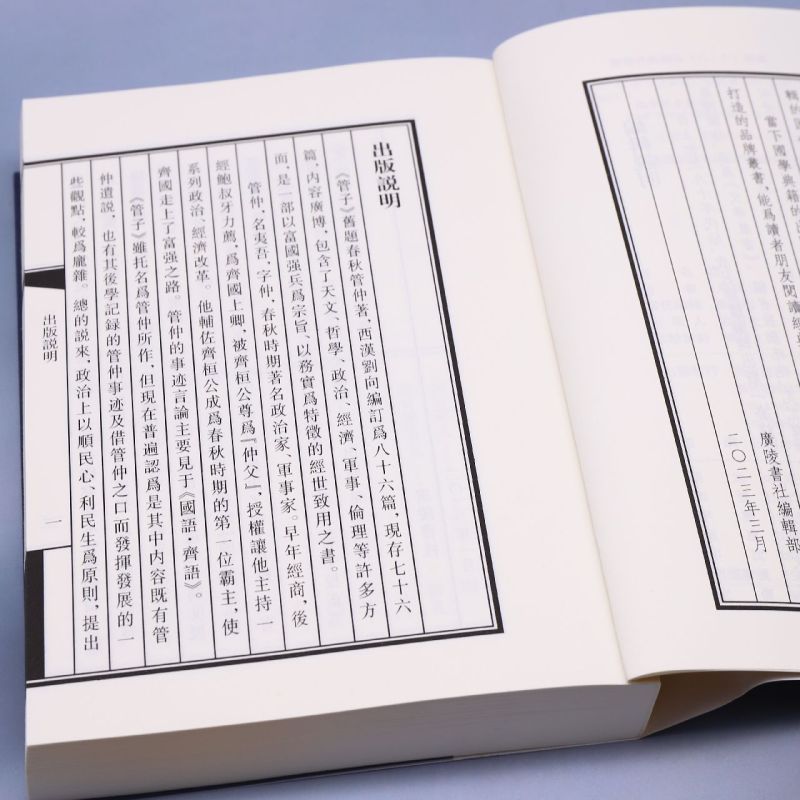 輯的國
當下國學典籍的出
打造的品牌叢書，能爲讀者朋友閱讀經
廣陵書社編輯部
二〇二三年三月
出版説明
《管子》舊題春秋管仲著，西漢劉向編訂爲八十六篇，現存七十六
篇，内容廣博，包含了天文、哲學、政治、經濟、軍事、倫理等許多方
面，是一部以富國强兵爲宗旨、以務實爲特徵的經世致用之書。
管仲，名夷吾，字仲，春秋時期著名政治家、軍事家。早年經商，後
經鮑叔牙力薦，爲齊國上卿，被齊桓公尊爲『仲父』，授權讓他主持一
系列政治、經濟改革。他輔佐齊桓公成爲春秋時期的第一位霸主，使
齊國走上了富强之路。管仲的事迹言論主要見于《國語·齊語》。
《管子》雖托名爲管仲所作，但現在普遍認爲是其中内容既有管
仲遺説，也有其後學記録的管仲事迹及借管仲之口而發揮發展的一
些觀點，較爲龐雜。總的説來，政治上以順民心、利民生爲原則，提出
出版説明
一